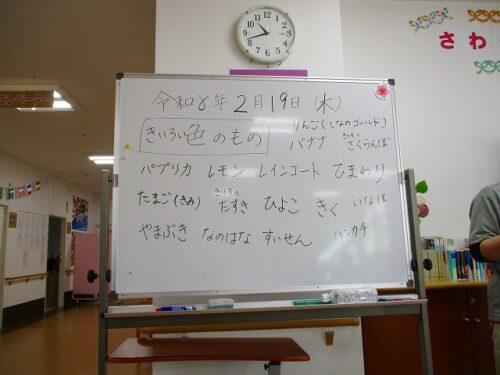 さわ
エレベーター
令和8年2月19日(木)
きいろい色のもの
りんご(しなのゴールド)
バナナ きいろいさくらんぼ
パプリカ レモン レインコート ひまわり
たまご(きみ) きいろのたすき ひよこ きく いなほ
やまぶき なのはな すいせん ハンカチ